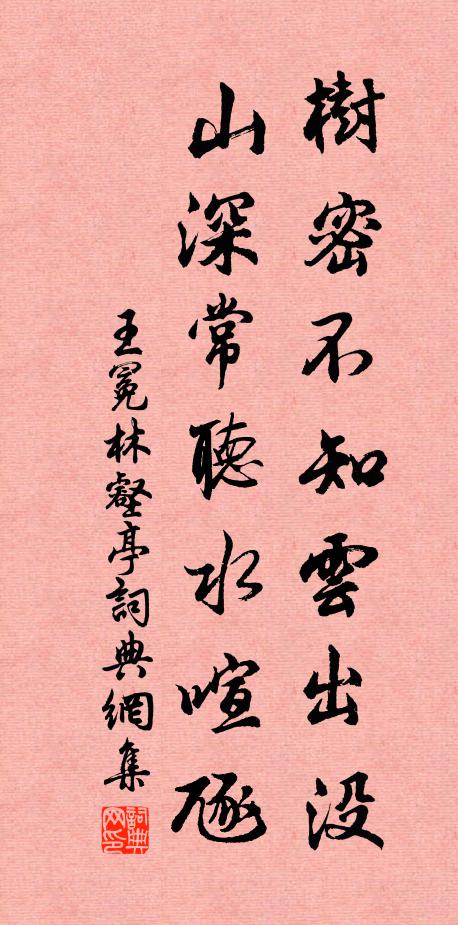 樹密不知雲出没
山深常聽水喧豗
王冕林壑亭詞典網集
詞典网印